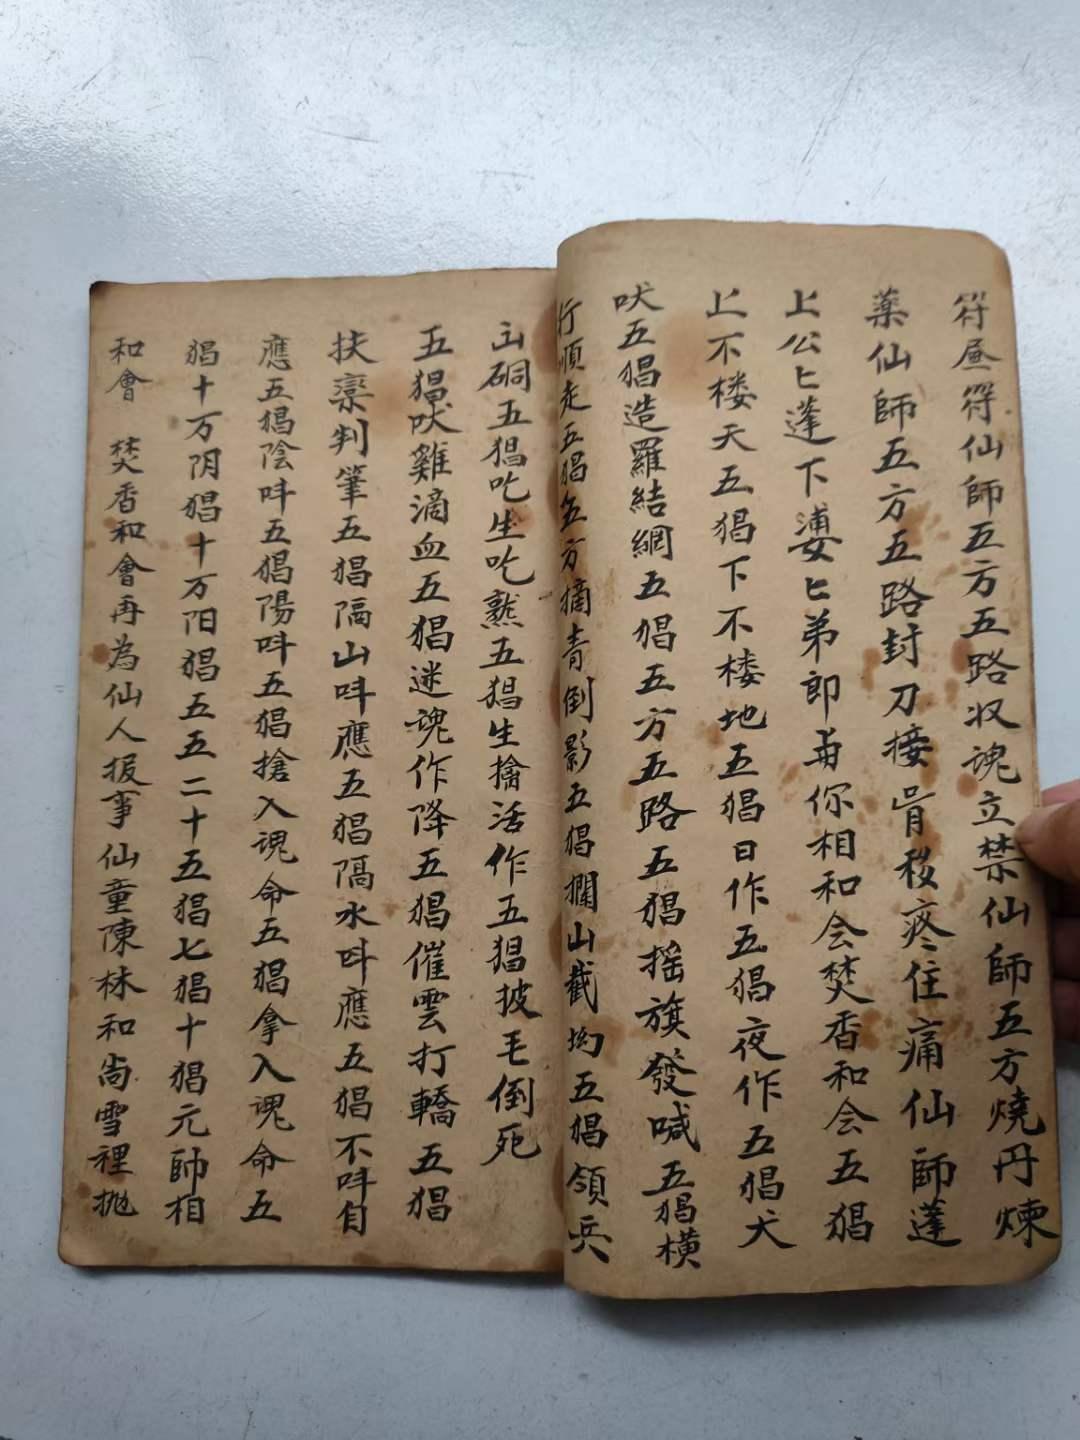 符昼符仙師五方五路收魂立禁仙師五方燒丹煉
薬仙師五方五路封刀接骨移疼住痛仙師蓬
上公匕蓬下婆匕弟郎毋你相和会焚香和会五猖
上不楼天五猖下不楼地五猖日作五猖夜作五猖犬
吠五猖造羅結網五猖五方五路五猖摇旗發喊五猖横
行順走五猖五方摘青倒影五猖攔山截坳五猖領兵
五硐五猖吃生吃熟五猖生擒活作五猖披毛倒死
五猖吠雞滴血五猖迷魂作降五猖催雲打轎五猖
扶鸞判筆五猖隔山呌應五猖隔水呌應五猖不呌自
應五猖陰呌五猖陽呌五猖搶入魂命五猖拿入魂命五
猖十万阴猖十万阳猖五五二十五猖七猖十猖元帥相
和會 焚香和會再為仙人报事仙童陳林和尚雪裡拋